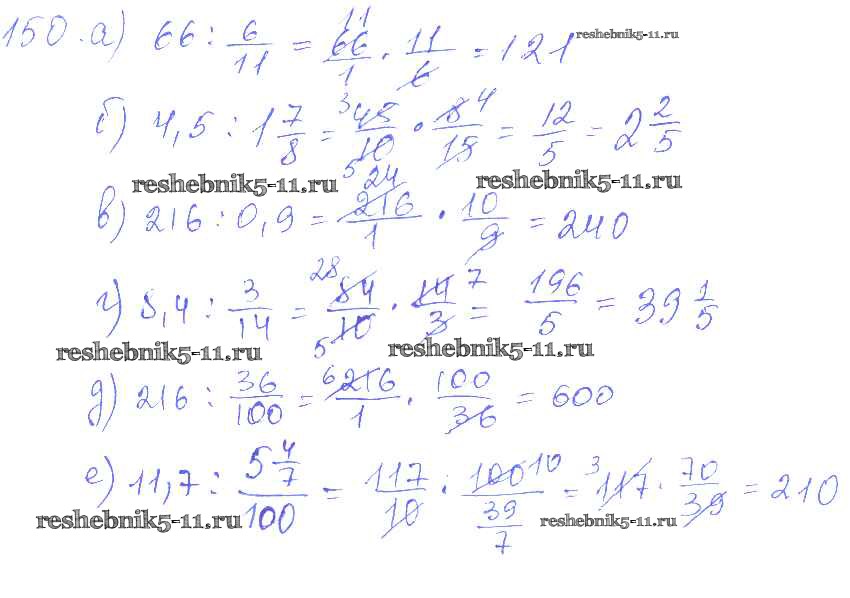 150. а) 66 : 6/11 = 11 66/1 · 11/6 = 121 reshebnik5-11.ru
б) 4,5 : 1 7/8 = 3 45/10 5 · 8 4/15 = 12/5 = 2 2/5
reshebnik5-11.ru reshebnik5-11.ru
в) 216 : 0,9 = 24 216/1 · 10/9 = 240
г) 8,4 : 3/14 = 28 84/10 5 · 14 7/3 = 196/5 = 39 1/5
reshebnik5-11.ru reshebnik5-11.ru
д) 216 : 36/100 = 6 216/1 · 100/36 = 600
е) 11,7 : 5 4/7/100 = 117/10 · 100 10/39/7 = 3 117 · 70/39 = 210
reshebnik5-11.ru reshebnik5-11.ru